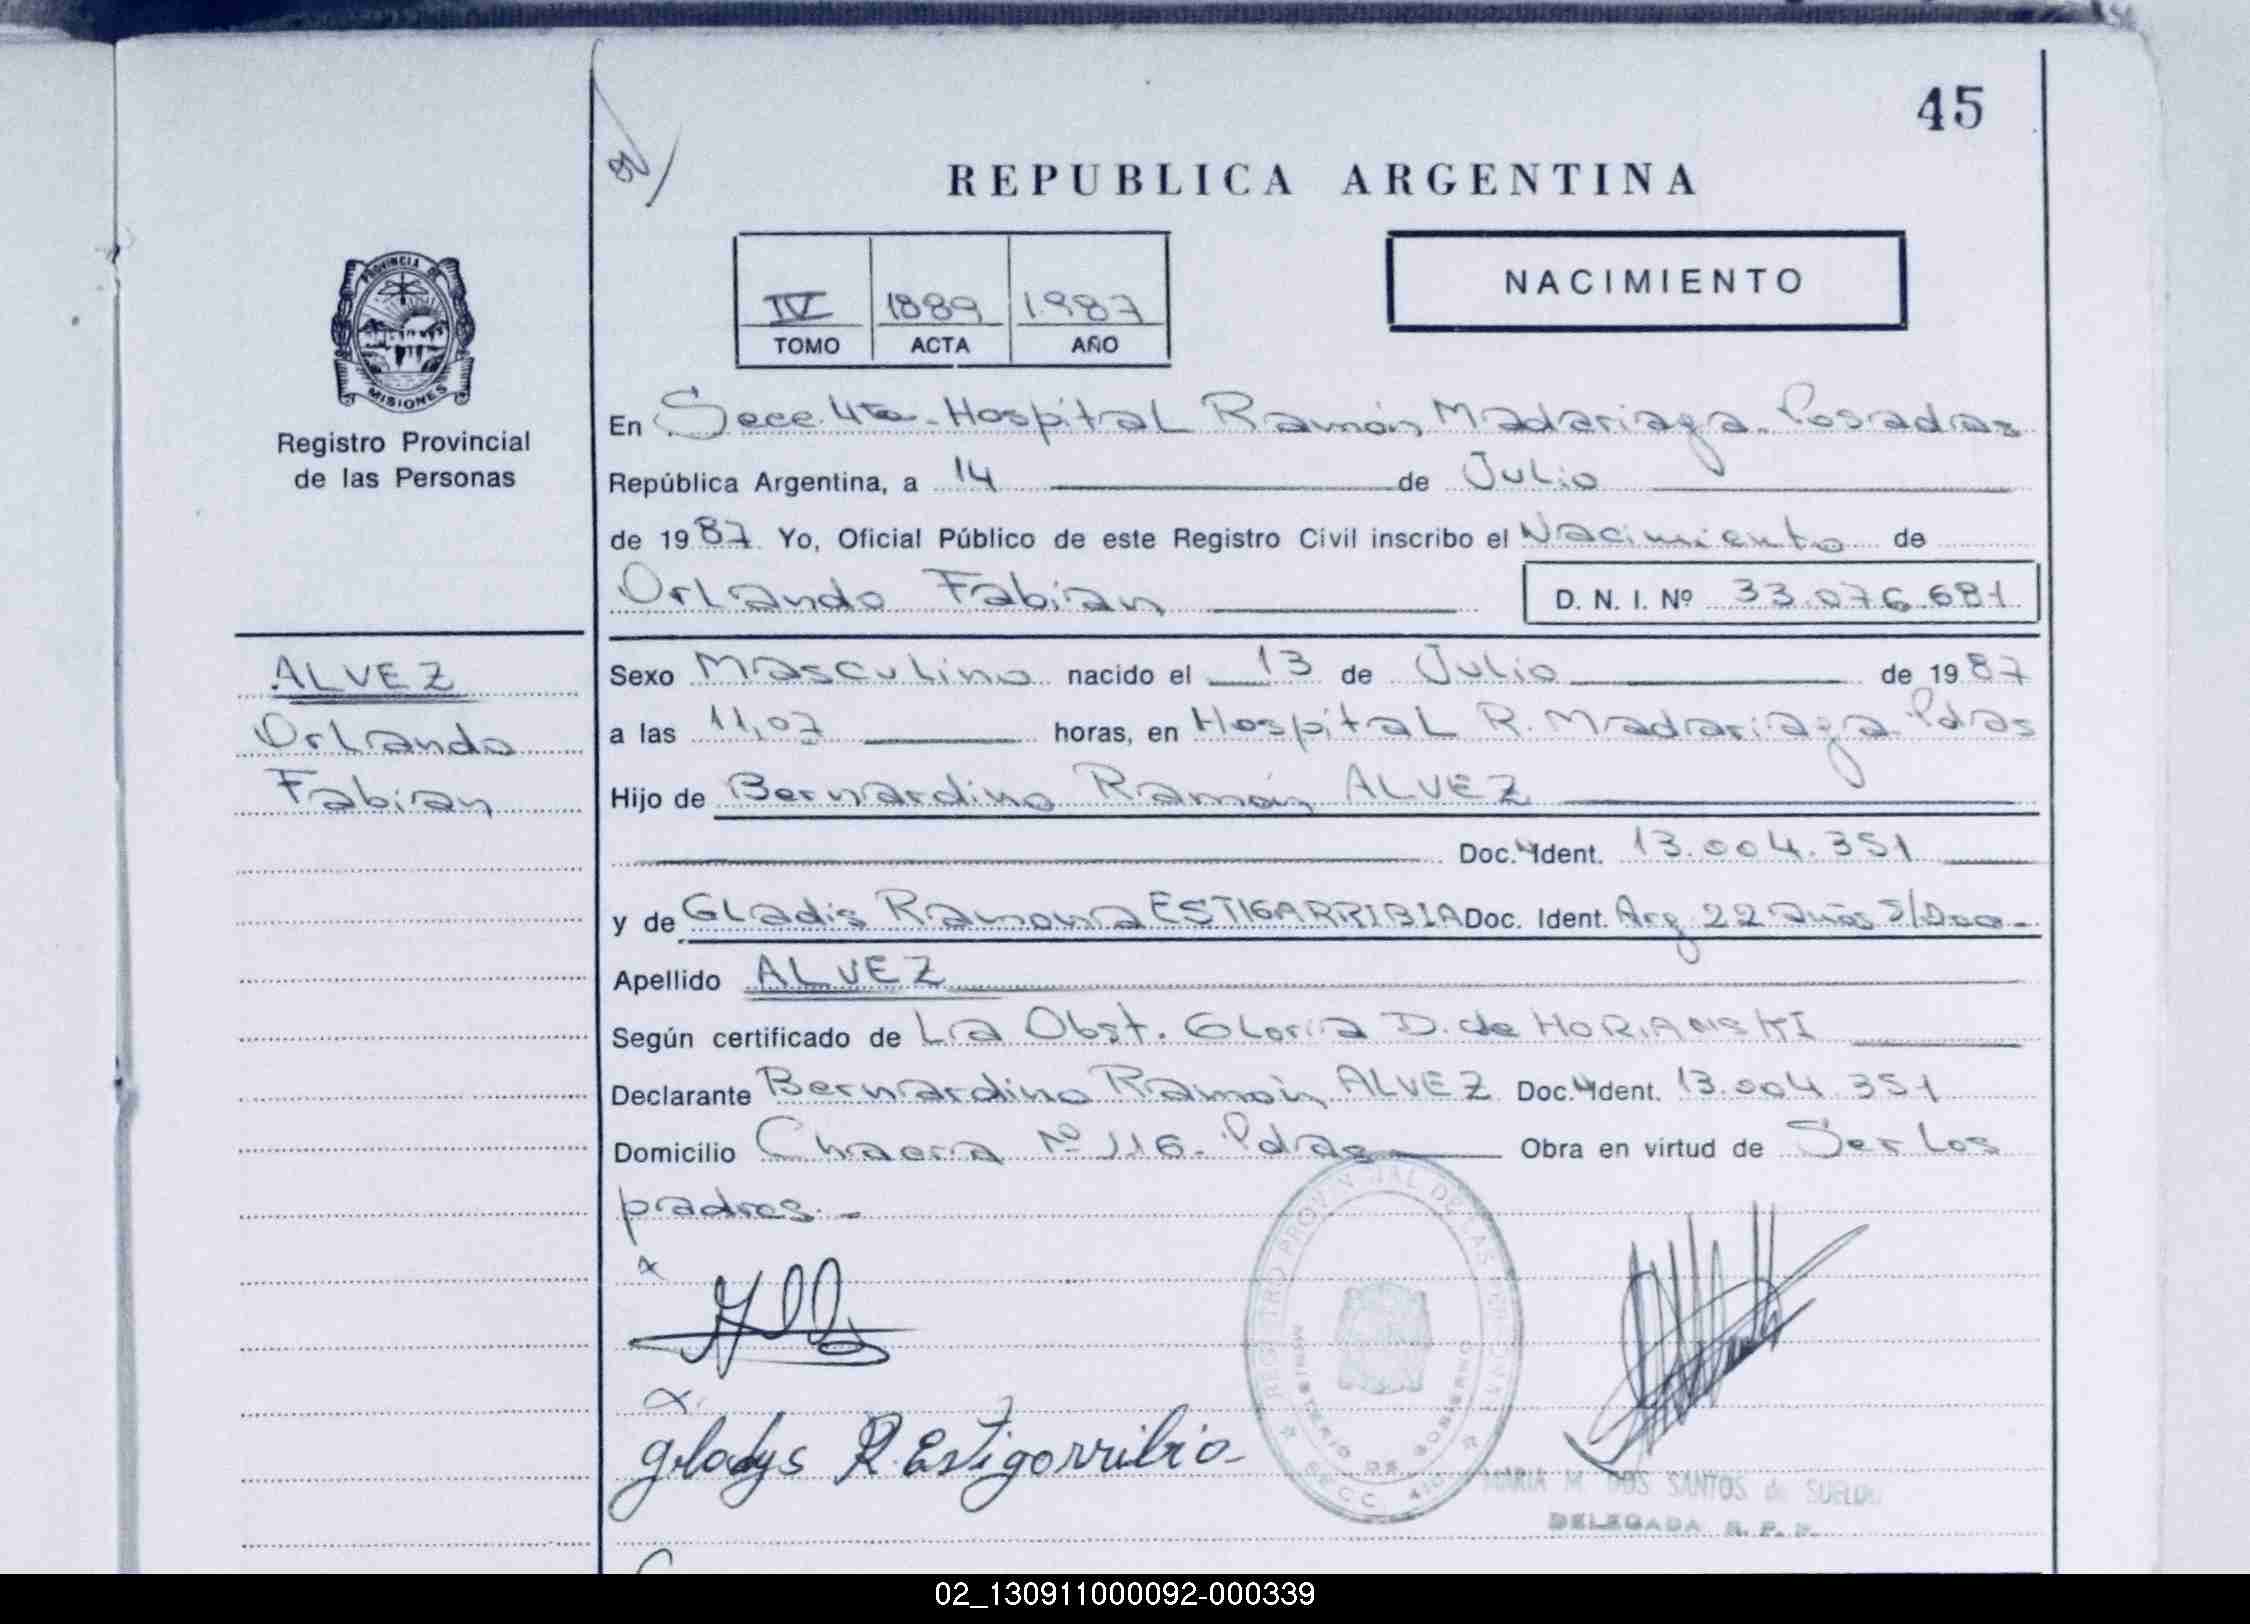 45
REPUBLICA ARGENTINA
PROVINCIA DE
MISIONES
Registro Provincial
de las Personas
IV 1889 1.987
TOMO ACTA AÑO
NACIMIENTO
En Secc. 4ta. Hospital Ramón Madariaga. Posadas
República Argentina, a 14 de Julio
de 1987. Yo, Oficial Público de este Registro Civil inscribo el Nacimiento de
Orlando Fabian D. N. I. Nº 33.076.681
ALVEZ
Orlando
Fabian
Sexo Masculino nacido el 13 de Julio de 1987
a las 11,07 horas, en Hospital R. Madariaga. Pdas
Hijo de Bernardino Ramón ALVEZ
Doc. Ident. 13.004.351
y de Gladis Ramona ESTIGARRIBIA Doc. Ident. Arg. 22 años S/Doc.-
Apellido ALVEZ
Según certificado de La Obst. Gloria D. de HORIANSKI
Declarante Bernardino Ramón ALVEZ Doc. Ident. 13.004.351
Domicilio Chacra Nº 116. Pdas Obra en virtud de Ser los
padres.-
REGISTRO PROVINCIAL DE LAS PERSONAS
MINISTERIO DE GOBIERNO
SECC. 4ta
Gladys R. Estigarribia
MARIA M. DOS SANTOS de SUELDO
DELEGADA R. P. P.
02_130911000092-000339